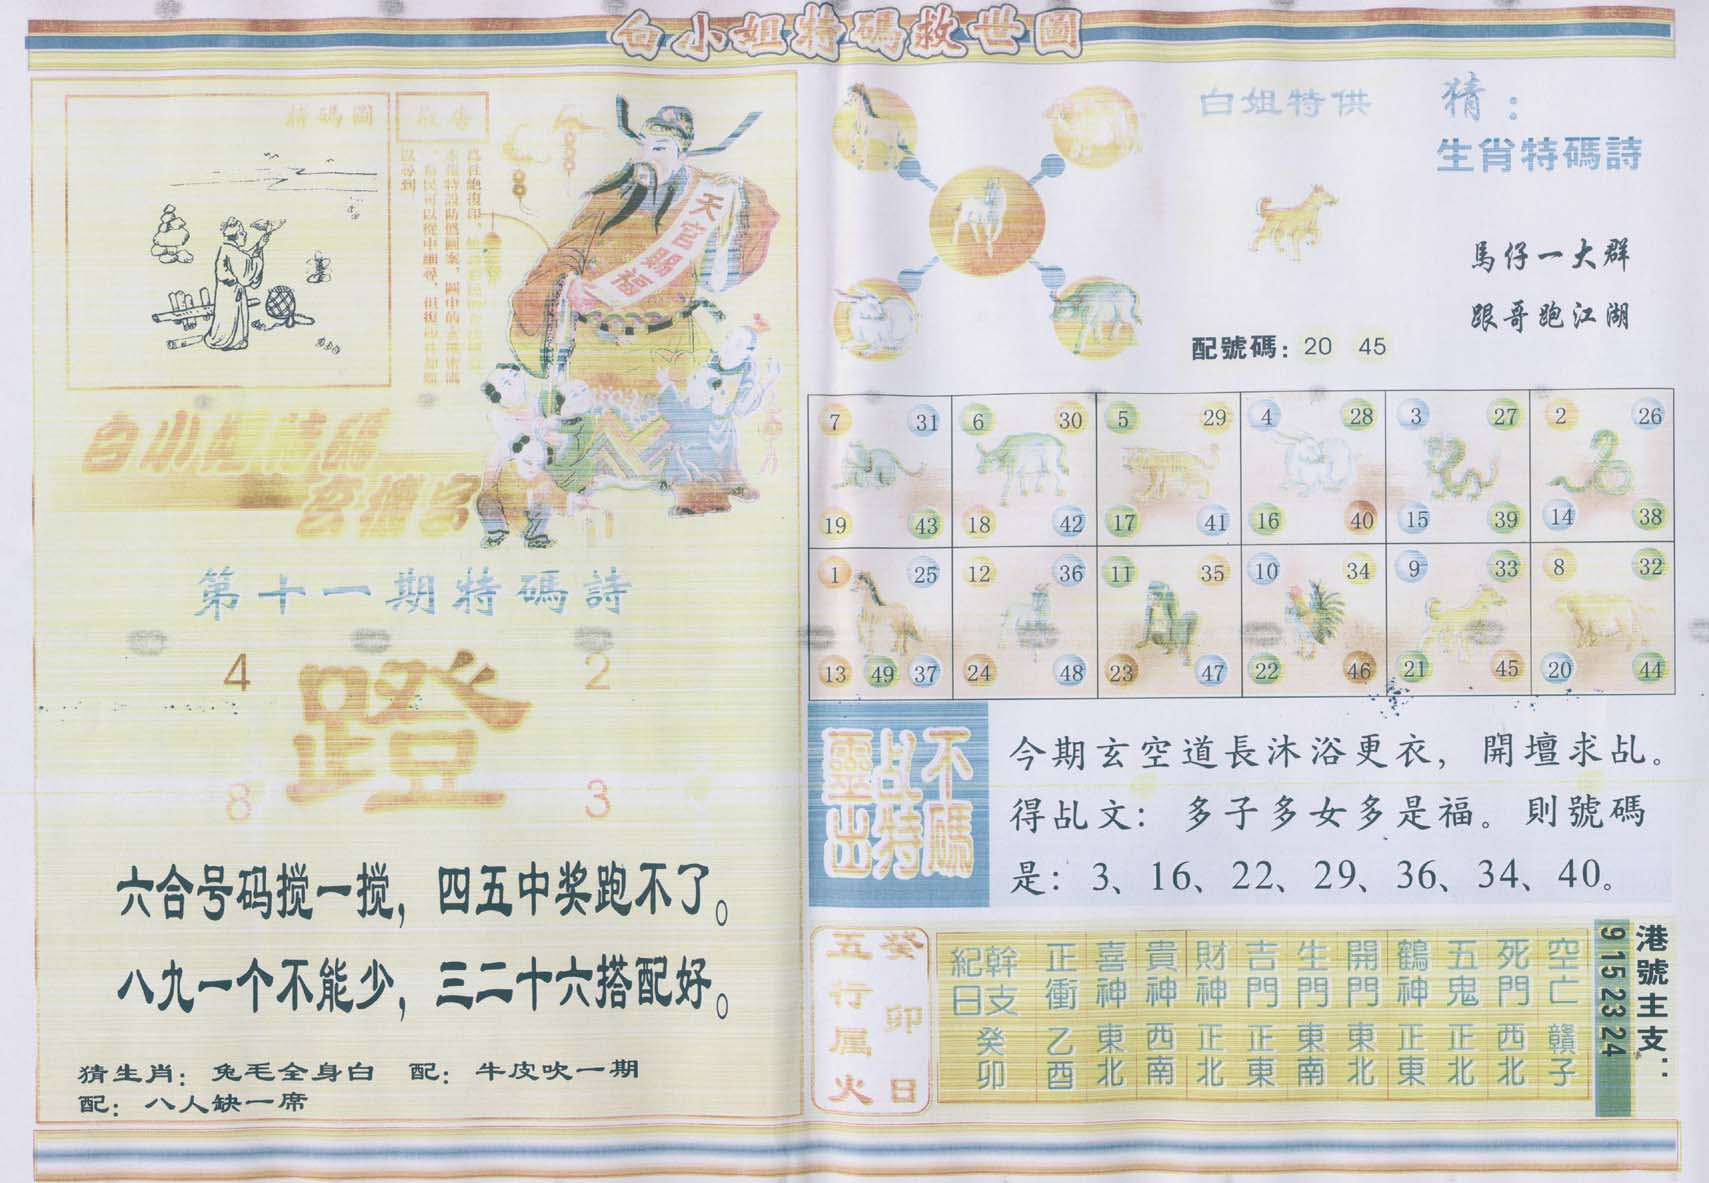 白小姐特碼救世圖
特碼圖
敬告
天官賜福
白小姐特碼
玄機字
第十一期特碼詩
4 2
蹬
8 3
六合号码搅一搅，四五中奖跑不了。
八九一个不能少，三二十六搭配好。
猜生肖：兔毛全身白 配：牛皮吹一期
配：八人缺一席
白姐特供
猜：
生肖特碼詩
馬仔一大群
跟哥跑江湖
配號碼：20 45
7 31 6 30 5 29 4 28 3 27 2 26
19 43 18 42 17 41 16 40 15 39 14 38
1 25 12 36 11 35 10 34 9 33 8 32
13 49 37 24 48 23 47 22 46 21 45 20 44
不碼
乩特
靈出
今期玄空道長沐浴更衣，開壇求乩。
得乩文：多子多女多是福。則號碼
是：3、16、22、29、36、34、40。
癸卯日
五行属火
幹支 紀日 正衝 喜神 貴神 財神 吉門 生門 開門 鶴神 五鬼 死門 空亡
癸卯 乙酉 東北 西南 正北 正東 東南 東北 正東 正北 西北 贛子
港號主支：
9 15 23 24